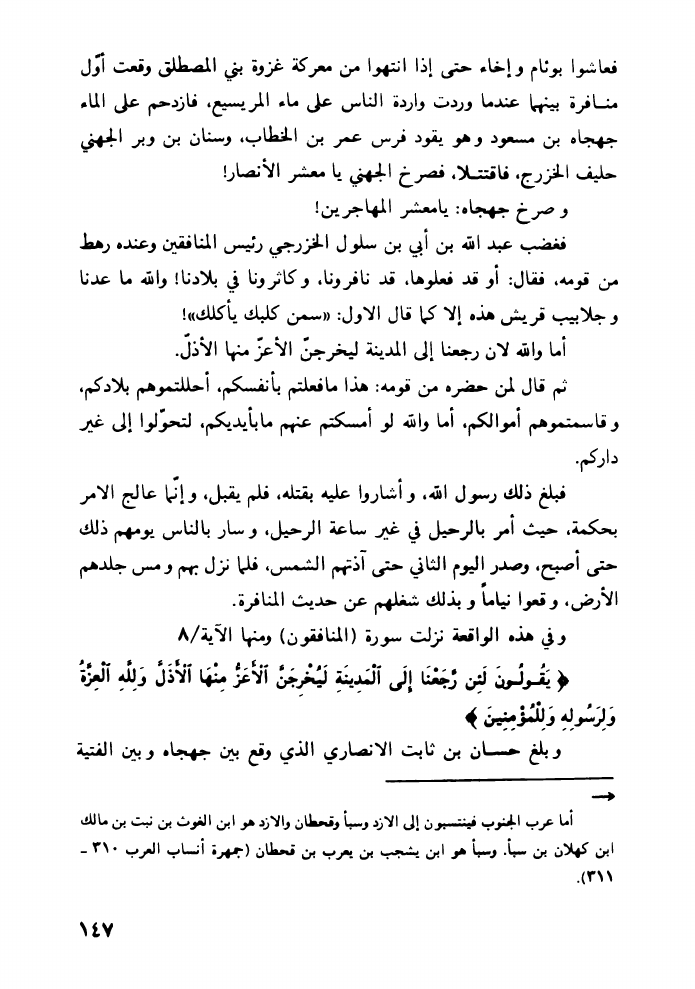 فعاشوا بوئام وإخاء حتى إذا انتهوا من معركة غزوة بني المصطلق وقعت أوّل
منافرة بينهما عندما وردت واردة الناس على ماء المريسيع، فازدحم على الماء
جهجاه بن مسعود وهو يقود فرس عمر بن الخطاب، وسنان بن وبر الجهني
حليف الخزرج، فاقتتلا، فصرخ الجهني يا معشر الأنصار!
و صرخ جهجاه: يامعشر المهاجرين!
فغضب عبد الله بن أبي بن سلول الخزرجي رئيس المنافقين وعنده رهط
من قومه، فقال: أو قد فعلوها، قد نافرونا، وكاثرونا في بلادنا! والله ما عدنا
و جلابيب قريش هذه إلا كما قال الاول: «سمن كلبك يأكلك»!
أما والله لان رجعنا إلى المدينة ليخرجنّ الأعزّ منها الأذلّ.
ثم قال لمن حضره من قومه: هذا مافعلتم بأنفسكم، أحللتموهم بلادكم،
و قاسمتموهم أموالكم، أما والله لو أمسكتم عنهم مابأيديكم، لتحوّلوا إلى غير
داركم.
فبلغ ذلك رسول الله، و أشاروا عليه بقتله، فلم يقبل، و إنّما عالج الامر
بحكمة، حيث أمر بالرحيل في غير ساعة الرحيل، و سار بالناس يومهم ذلك
حتى أصبح، وصدر اليوم الثاني حتى آذتهم الشمس، فلما نزل بهم و مس جلدهم
الأرض، و قعوا نياماً و بذلك شغلهم عن حديث المنافرة.
و في هذه الواقعة نزلت سورة (المنافقون) ومنها الآية/٨
﴿ يَقُولُونَ لَئِن رَّجَعْنَا إِلَى ٱلْمَدِينَةِ لَيُخْرِجَنَّ ٱلْأَعَزُّ مِنْهَا ٱلْأَذَلَّ وَلِلَّهِ ٱلْعِزَّةُ
وَلِرَسُولِهِ وَلِلْمُؤْمِنِينَ ﴾
و بلغ حسان بن ثابت الانصاري الذي وقع بين جهجاه و بين الفتية
→
أما عرب الجنوب فينتسبون إلى الازد وسبأ وقحطان والازد هو ابن الغوث بن نبت بن مالك
ابن كهلان بن سبأ. وسبأ هو ابن يشجب بن يعرب بن قحطان (جمهرة أنساب العرب ٣١٠ ـ
٣١١).
١٤٧